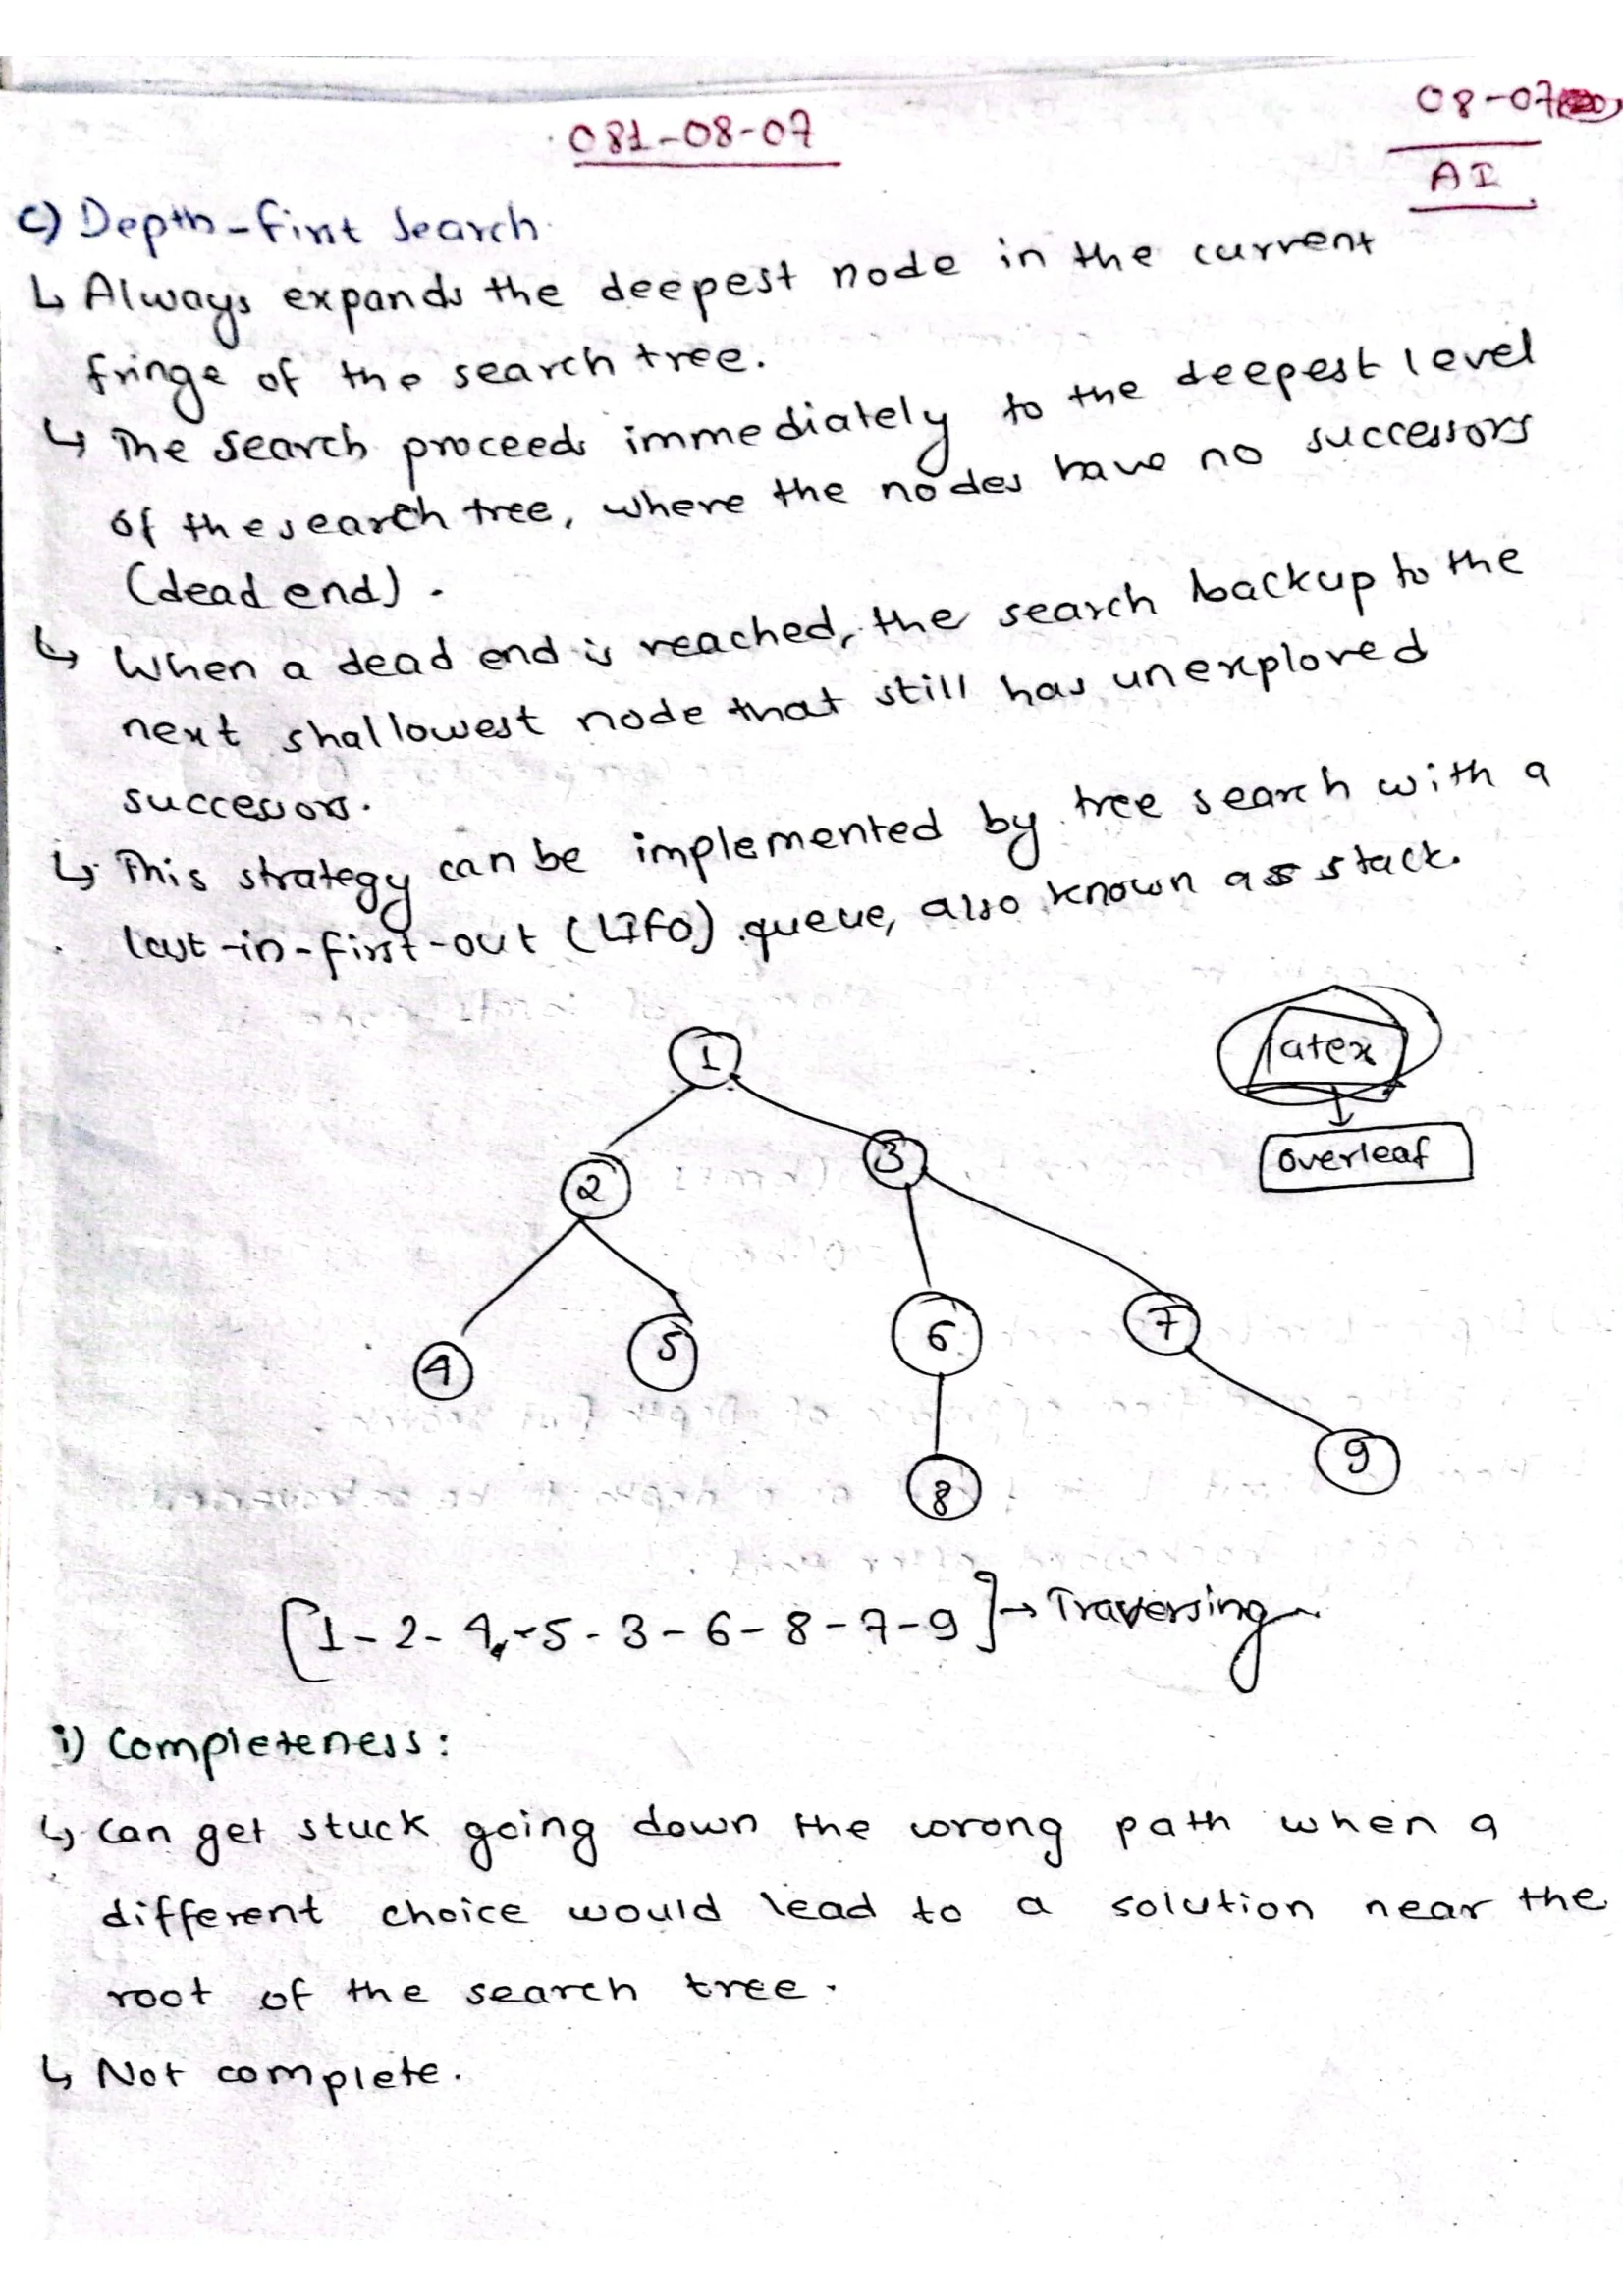 08-07
081-08-07
AI
c) Depth-first search
↳ Always expands the deepest node in the current
fringe of the search tree.
↳ The search proceeds immediately to the deepest level
of the search tree, where the nodes have no successors
(dead end).
↳ When a dead end is reached, the search backup to the
next shallowest node that still has unexplored
successors.
↳ This strategy can be implemented by tree search with a
last-in-first-out (LIFO) queue, also known as stack.
latex
overleaf
1
2
3
4
5
6
7
8
9
[1-2-4-5-3-6-8-7-9] → Traversing
i) Completeness:
↳ Can get stuck going down the wrong path when a
different choice would lead to a solution near the
root of the search tree.
↳ Not complete.